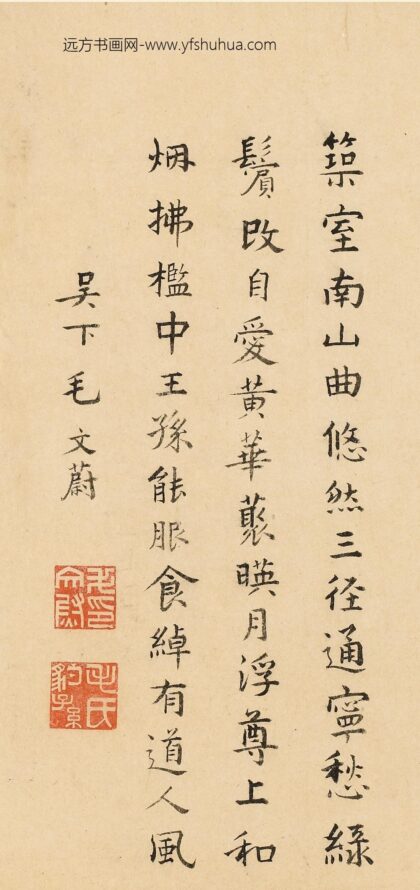 远方书画网-www.yfshuhua.com
築室南山曲悠然三径通寧愁綠
鬢改自愛黄華藂暎月浮尊上和
烟拂檻中王孫能服食綽有道人風
吴下毛文蔚
毛印文蔚
毛氏豹孫